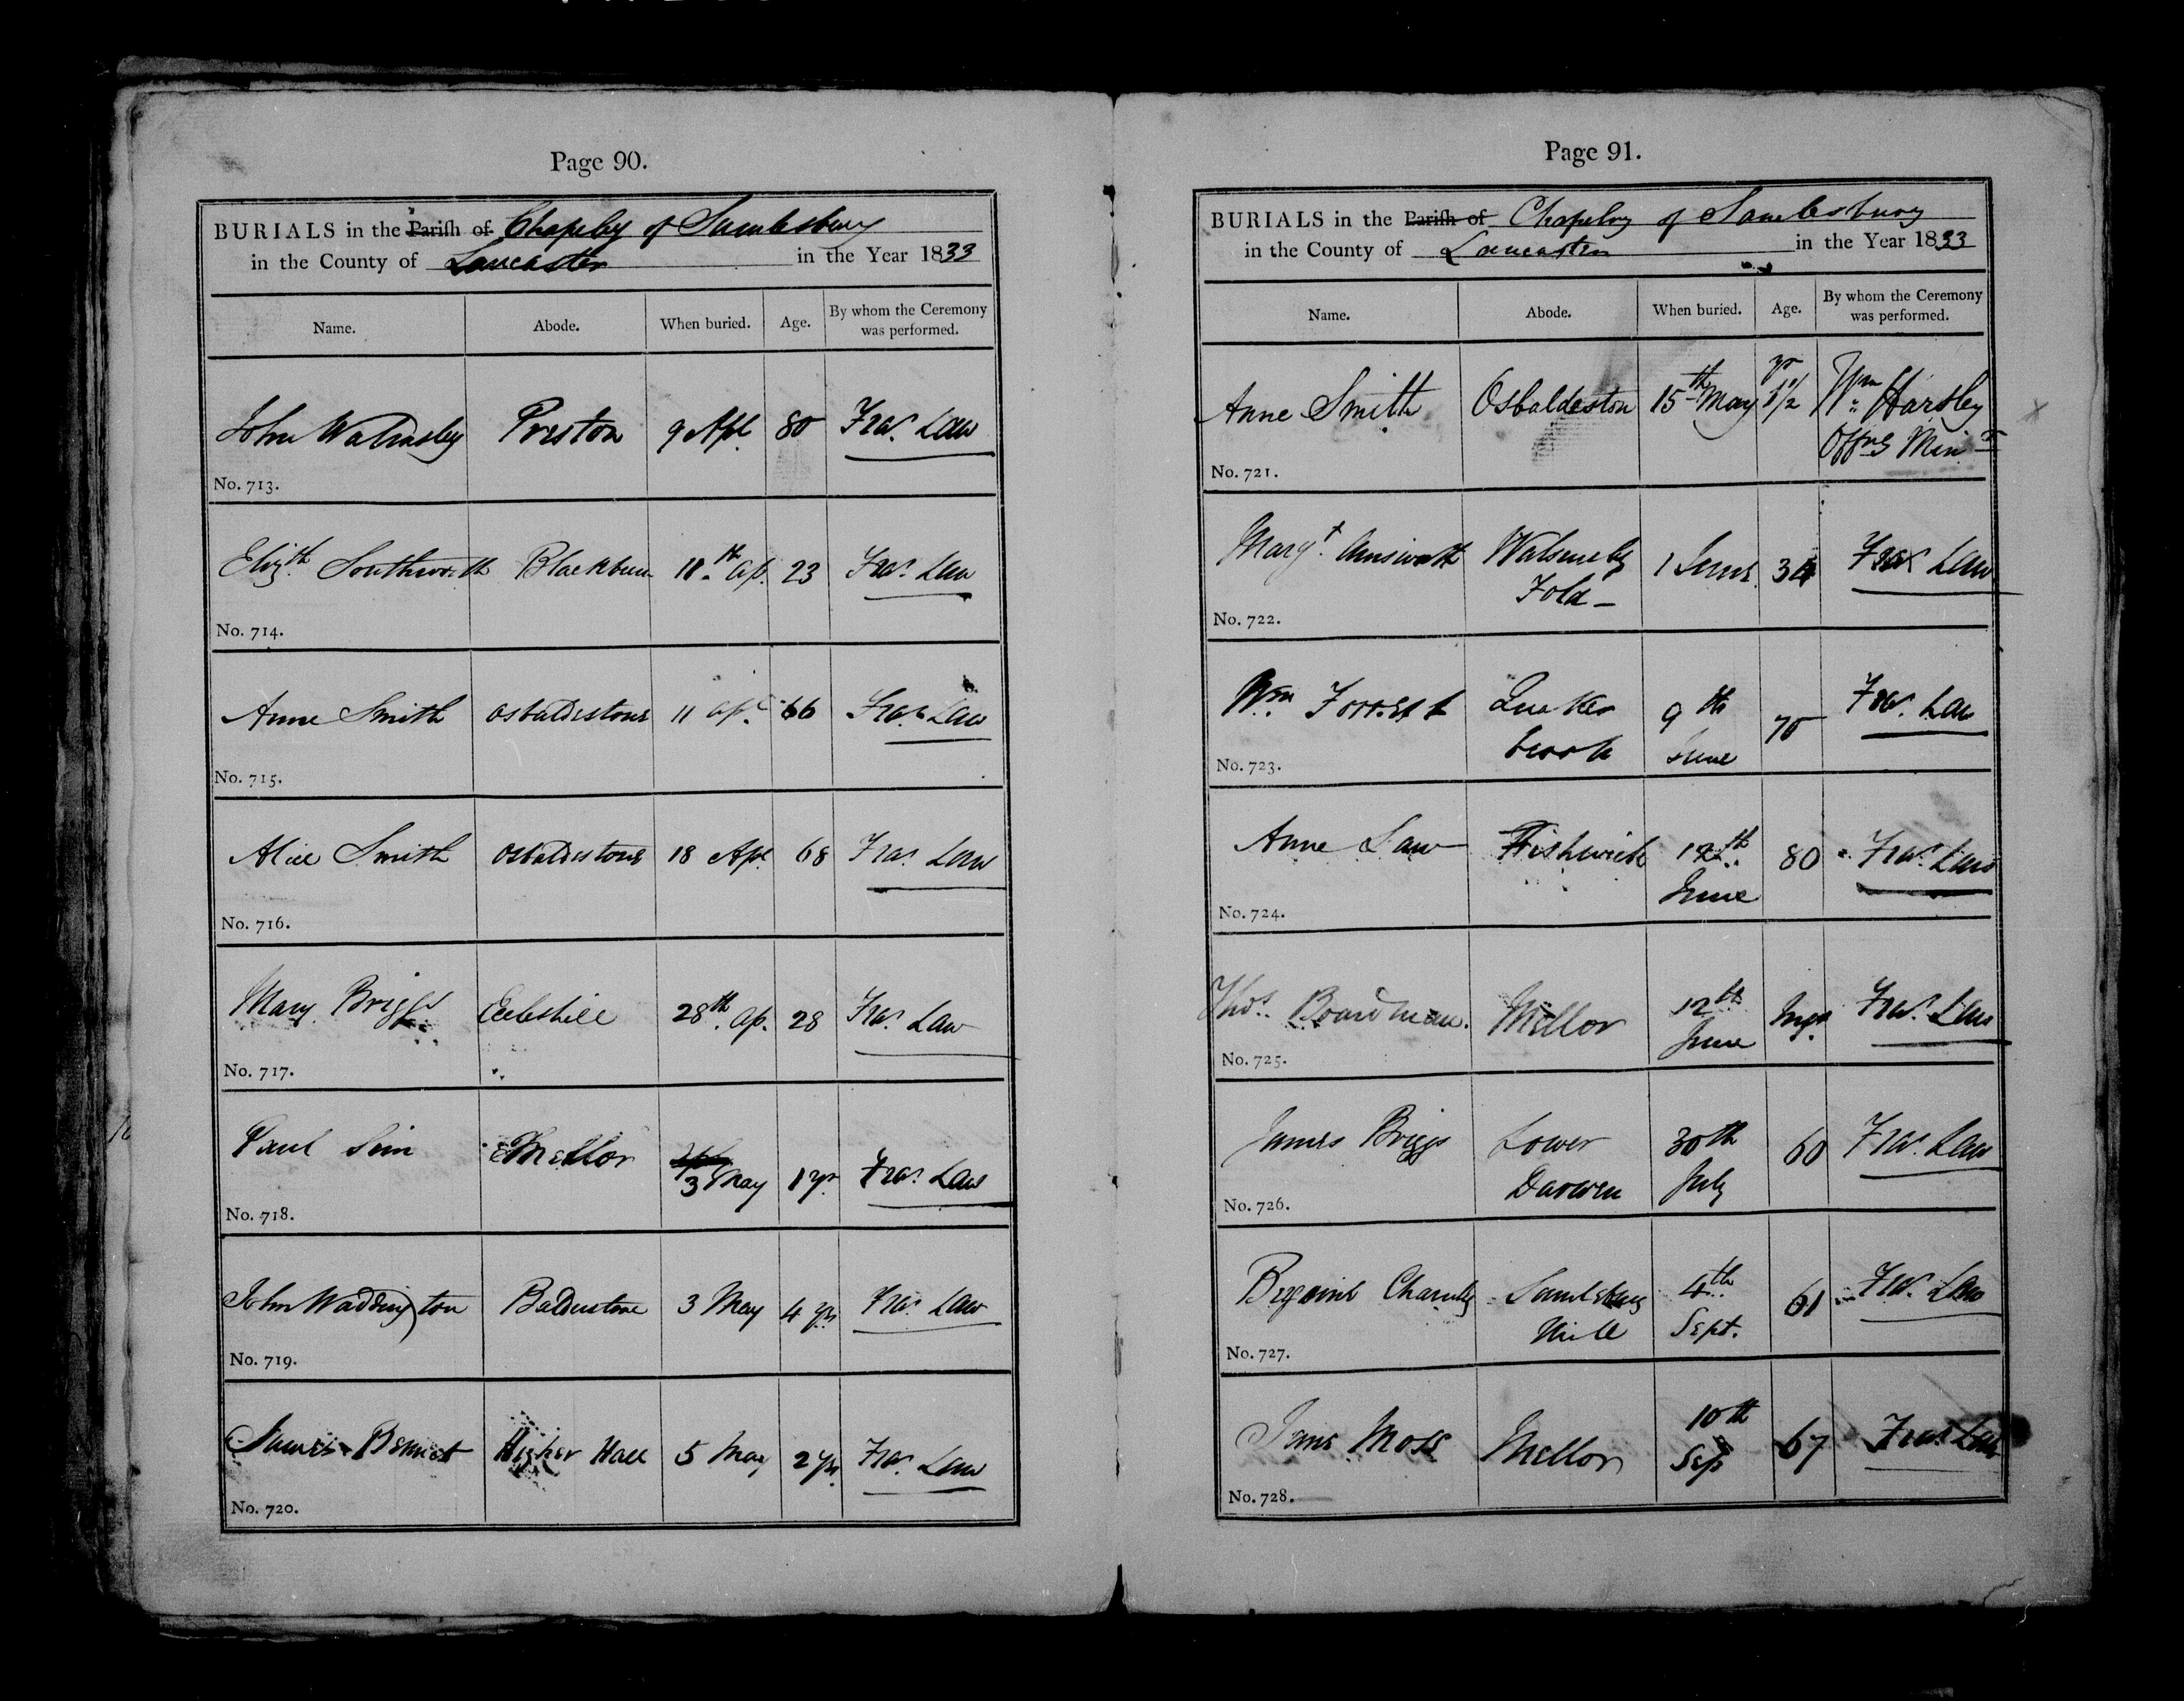 Page 90.
BURIALS in the Parish of Chapelry of Samlesbury
in the County of Lancaster in the Year 1833
Name. Abode. When buried. Age. By whom the Ceremony was performed.
John Walmsley Preston 9 Apl. 80 Fras. Law
No. 713.
Elizth. Southworth Blackburn 11th. Ap. 23 Fras. Law
No. 714.
Anne Smith Osbaldestone 11 Apl. 66 Fras. Law
No. 715.
Alice Smith Osbaldestone 18 Apl 68 Fras. Law
No. 716.
Mary Briggs Eccleshill 28th. Ap. 28 Fras. Law
No. 717.
Paul Sim Mellor 3 May 1 yr. Fras. Law
No. 718.
John Waddington Balderstone 3 May 4 yrs Fras. Law
No. 719.
James Bennet Higher Hall 5 May 2 yrs Fras. Law
No. 720.
Page 91.
BURIALS in the Parish of Chapelry of Samlesbury
in the County of Lancaster in the Year 1833
Name. Abode. When buried. Age. By whom the Ceremony was performed.
Anne Smith Osbaldeston 15th May yr 1 1/2 Wm. Hartley
Offng Minr
No. 721.
Margt. Ainsworth Walmsley 1 June 34 Fras Law
Fold
No. 722.
Wm Forrest Quaker 9th 75 Fras. Law
brook June
No. 723.
Anne Law Fishwick 12th 80 Fras. Law
June
No. 724.
Thos. Boardman. Mellor 12th Fras. Law
June
No. 725.
James Briggs Lower 30th 60 Fras. Law
Darwen July
No. 726.
Charnley Samlesbury 4th 61 Fras. Law
Mill Sept.
No. 727.
Jane Moss Mellor 10th 67 Fras Law
Sep
No. 728.